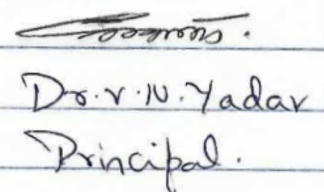 Dr. V. N. Yadav
Principal.